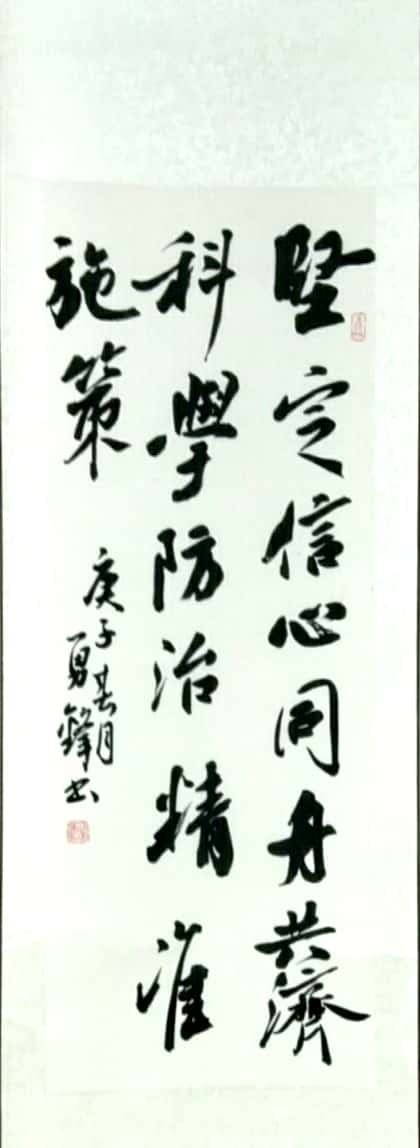 堅定信心同舟共濟
科學防治精准
施策
庚子春月
勇鋒书